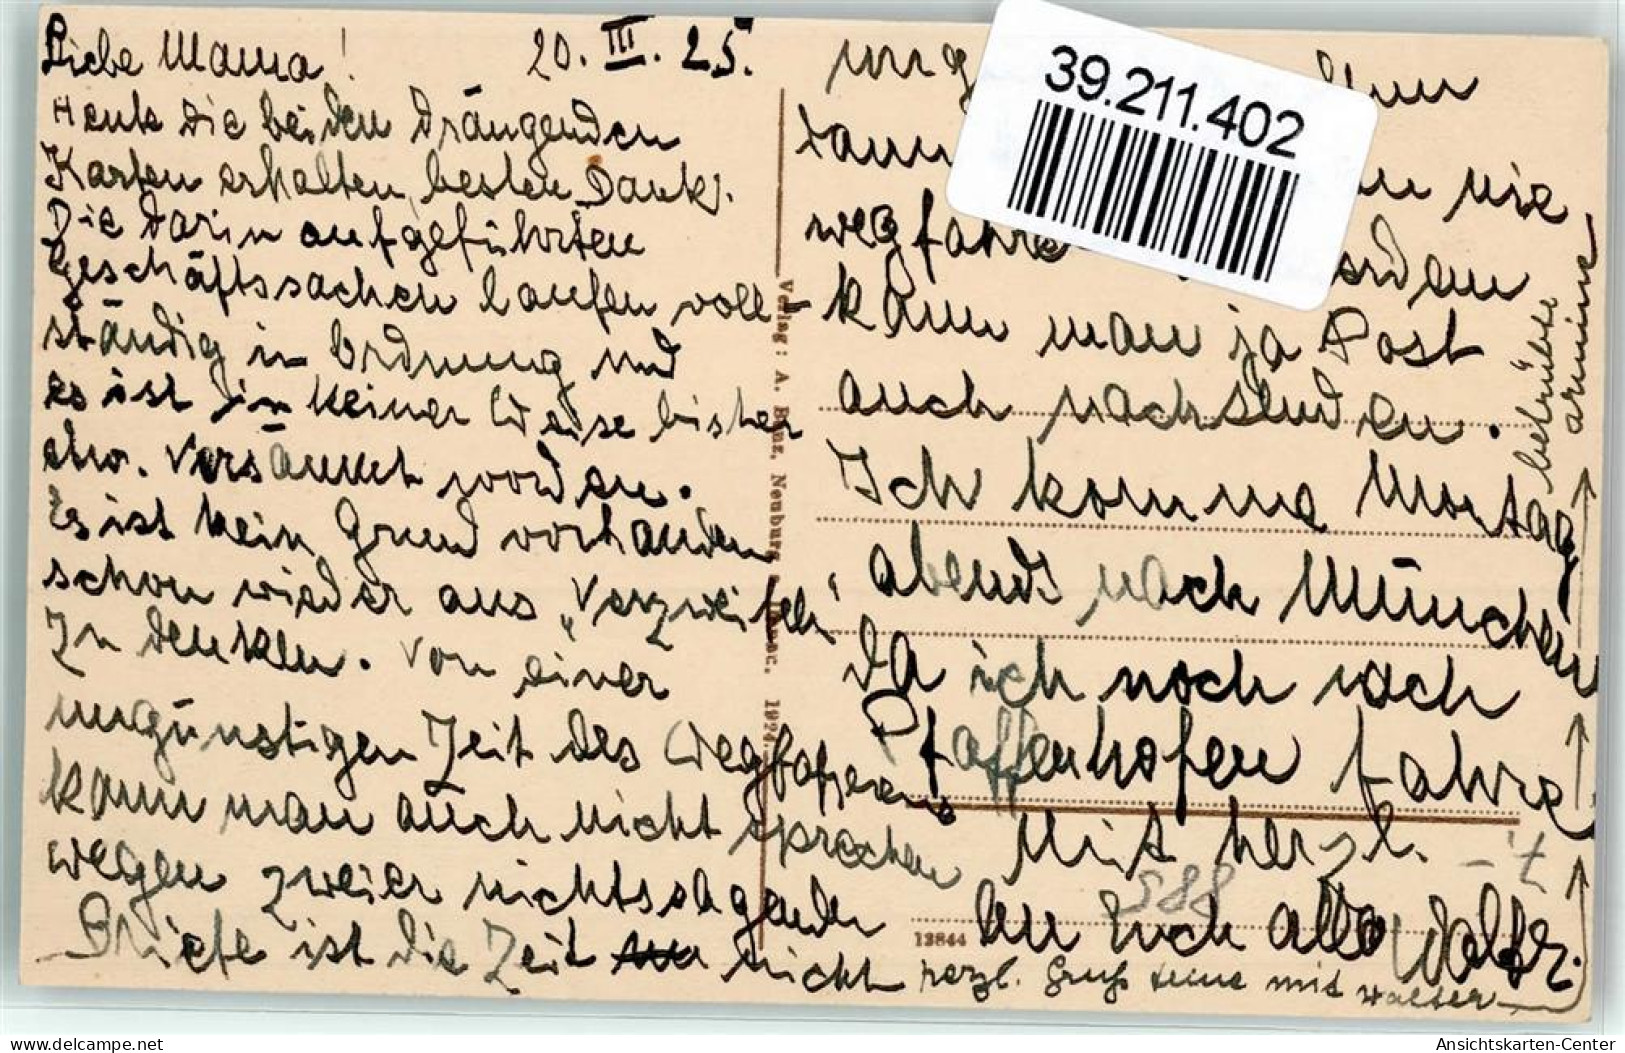 Liebe Mama! 20. III. 25.
Heute die beiden drängenden
Karten erhalten, besten Dank.
Die darin aufgeführten
Geschäftssachen laufen voll-
ständig in Ordnung und
es ist in keiner Weise bisher
etw. versäumt worden.
Es ist kein Grund vorhanden
schon wieder aus „Verzweifeln"
zu denken. Von einer
ungünstigen Zeit des Wegfahrens
kann man auch nicht sprechen
wegen zweier nichtssagender
Briefe ist die Zeit nicht
ung
dann nie
wegfahre
kann man ja Post
auch nachsenden.
Ich komme Montag
abends nach München
da ich noch nach
Pfaffenhofen fahre!
Mit herzl.
an Euch alle Walter.
herzl. Gruß mit Walter
betrübte
Armine
588
Verlag: A. Benz, Neuburg a. Donau. 1924.
13844
39.211.402
Ansichtskarten-Center
www.delcampe.net